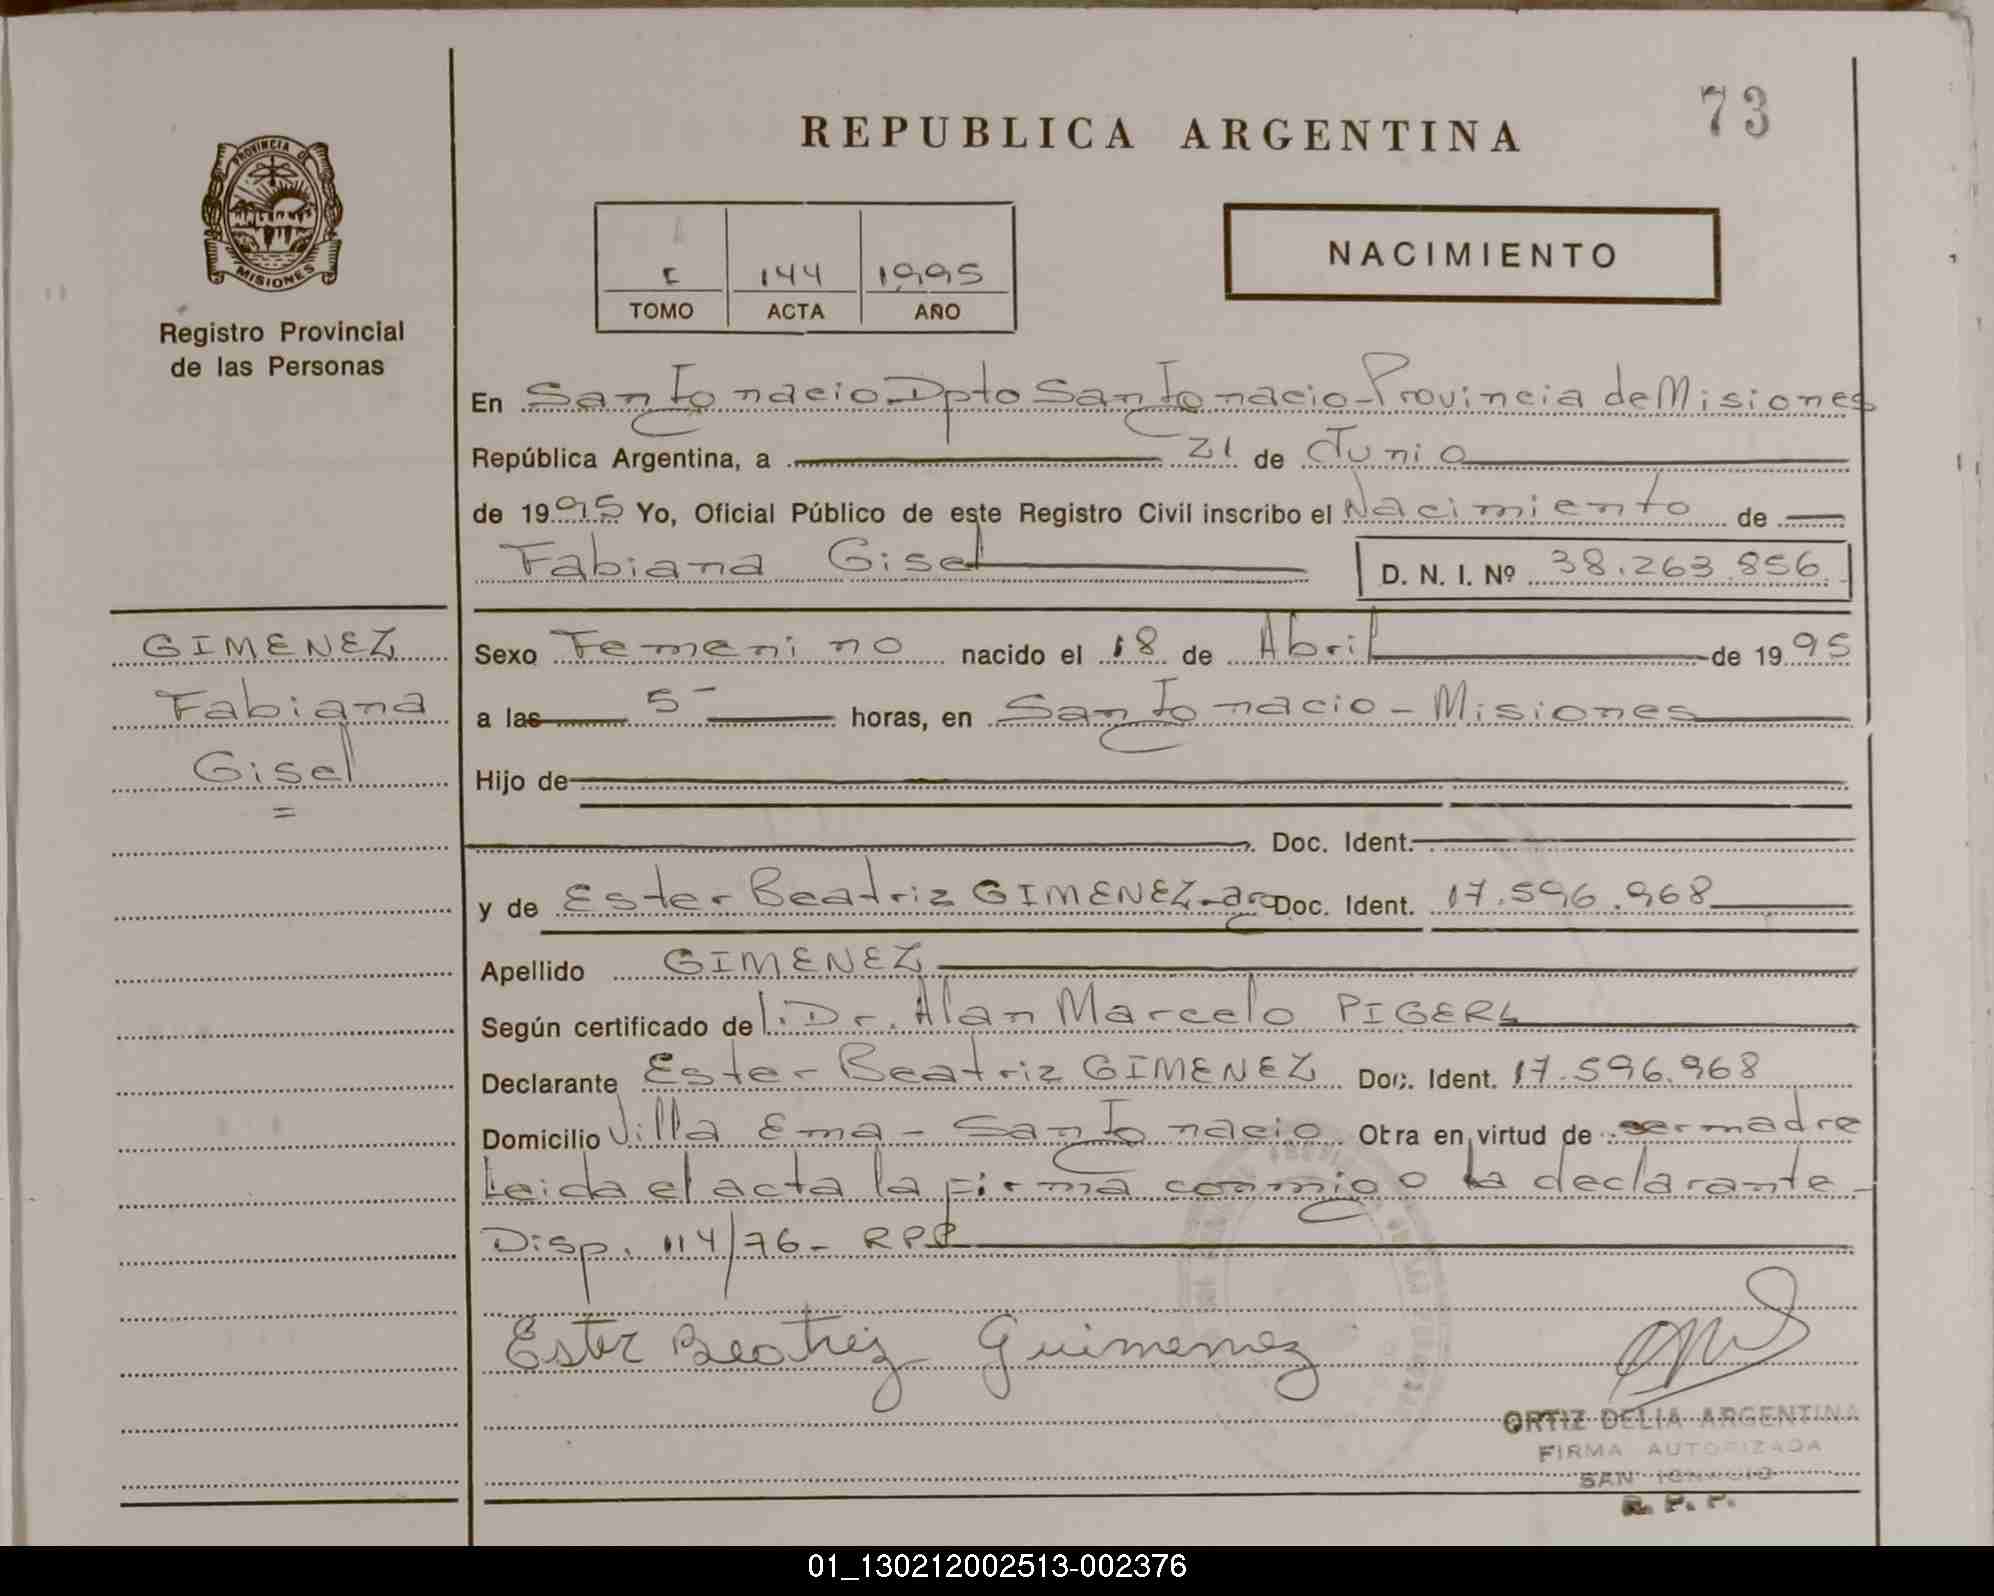 73
REPUBLICA ARGENTINA
PROVINCIA DE
MISIONES
Registro Provincial
de las Personas
144 1995
TOMO ACTA AÑO
NACIMIENTO
En San Ignacio Dpto San Ignacio - Provincia de Misiones
República Argentina, a 21 de Junio
de 1995 Yo, Oficial Público de este Registro Civil inscribo el Nacimiento de
Fabiana Gisel D. N. I. Nº 38.263.856
GIMENEZ
Fabiana
Gisel
=
Sexo Femenino nacido el 18 de Abril de 1995
a las 5- horas, en San Ignacio - Misiones
Hijo de
Doc. Ident.
y de Ester Beatriz GIMENEZ-arg Doc. Ident. 17.596.968
Apellido GIMENEZ
Según certificado de l. Dr. Alan Marcelo PIGERL
Declarante Ester Beatriz GIMENEZ Doc. Ident. 17.596.968
Domicilio Villa Ema - San Ignacio Obra en virtud de ser madre
Leida el acta la firma conmigo la declarante-
Disp. 114/76- RPP
Ester Beatriz Guimenez
ORTIZ DELIA ARGENTINA
FIRMA AUTORIZADA
SAN IGNACIO
R. P. P.
01_130212002513-002376